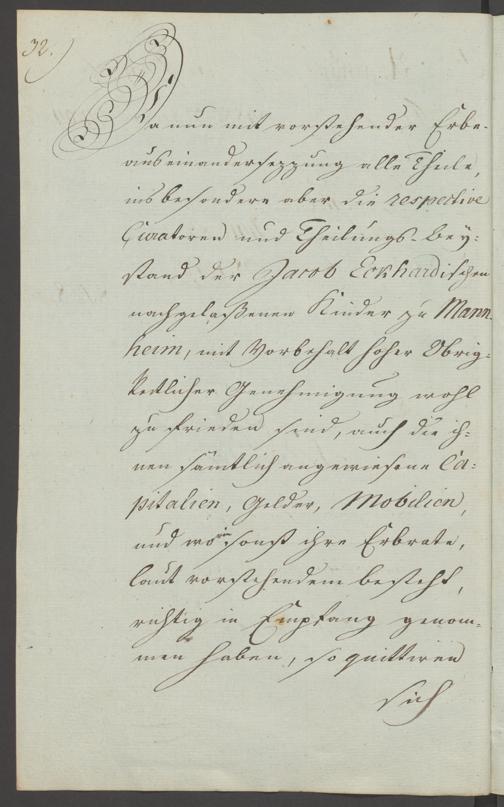 32.)
Da nun mit vorstehender Erbs-
auseinandersezzung alle Theile,
insbesondere aber die respective
Curatoren und Theilungs-Bey=
stand der Jacob Eckhardischen
nachgelaßenen Kinder zu Mann-
heim, mit Vorbehalt hoher Obrig=
keitlicher Genehmigung wohl
zufrieden sind, auch die ih=
nen sämtlich angewiesene Ca=
pitalien, Gelder, Mobilien,
und worin sonst ihre Erbrate,
laut vorstehendem besteht,
richtig in Empfang genom=
men haben, so quittiren
sich